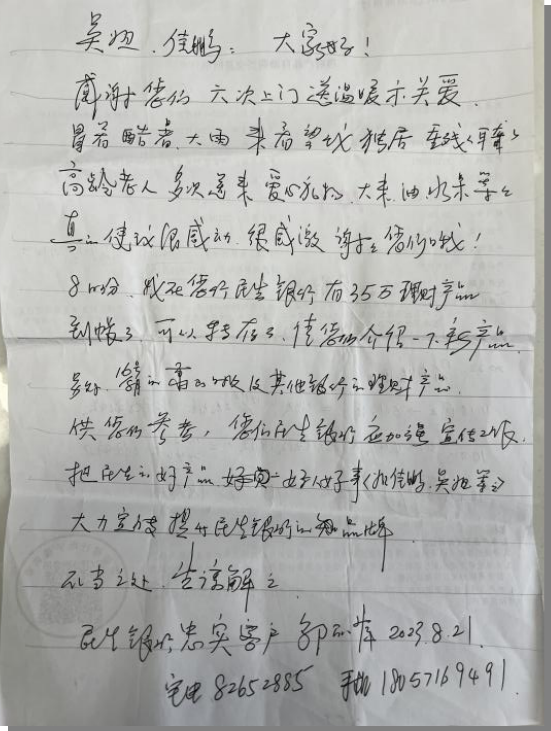 吴妲、佳鹏: 大家好!
感谢您们六次上门送温暖示关爱.
冒着酷暑、大雨来看望我独居
高龄老人多次送来爱心礼物.大米.油.水果等等
真的使我很感动.很感激 谢谢您们哦!
8月份.我在您行民生银行有35万理财产品
到帐了.可以转存了.请您们介绍一下新产品.
另外.16号 晚报及其他银行的理财产品.
供您们参考,您们民生银行应加强宣传工作.
把民生的好产品 好人好事(如佳鹏.吴妲等)
大力宣传提升民生银行的品牌
不当之处.望谅解之
民生银行忠实客户 2023.8.21.
宅电 82652885 手机 18057169491.